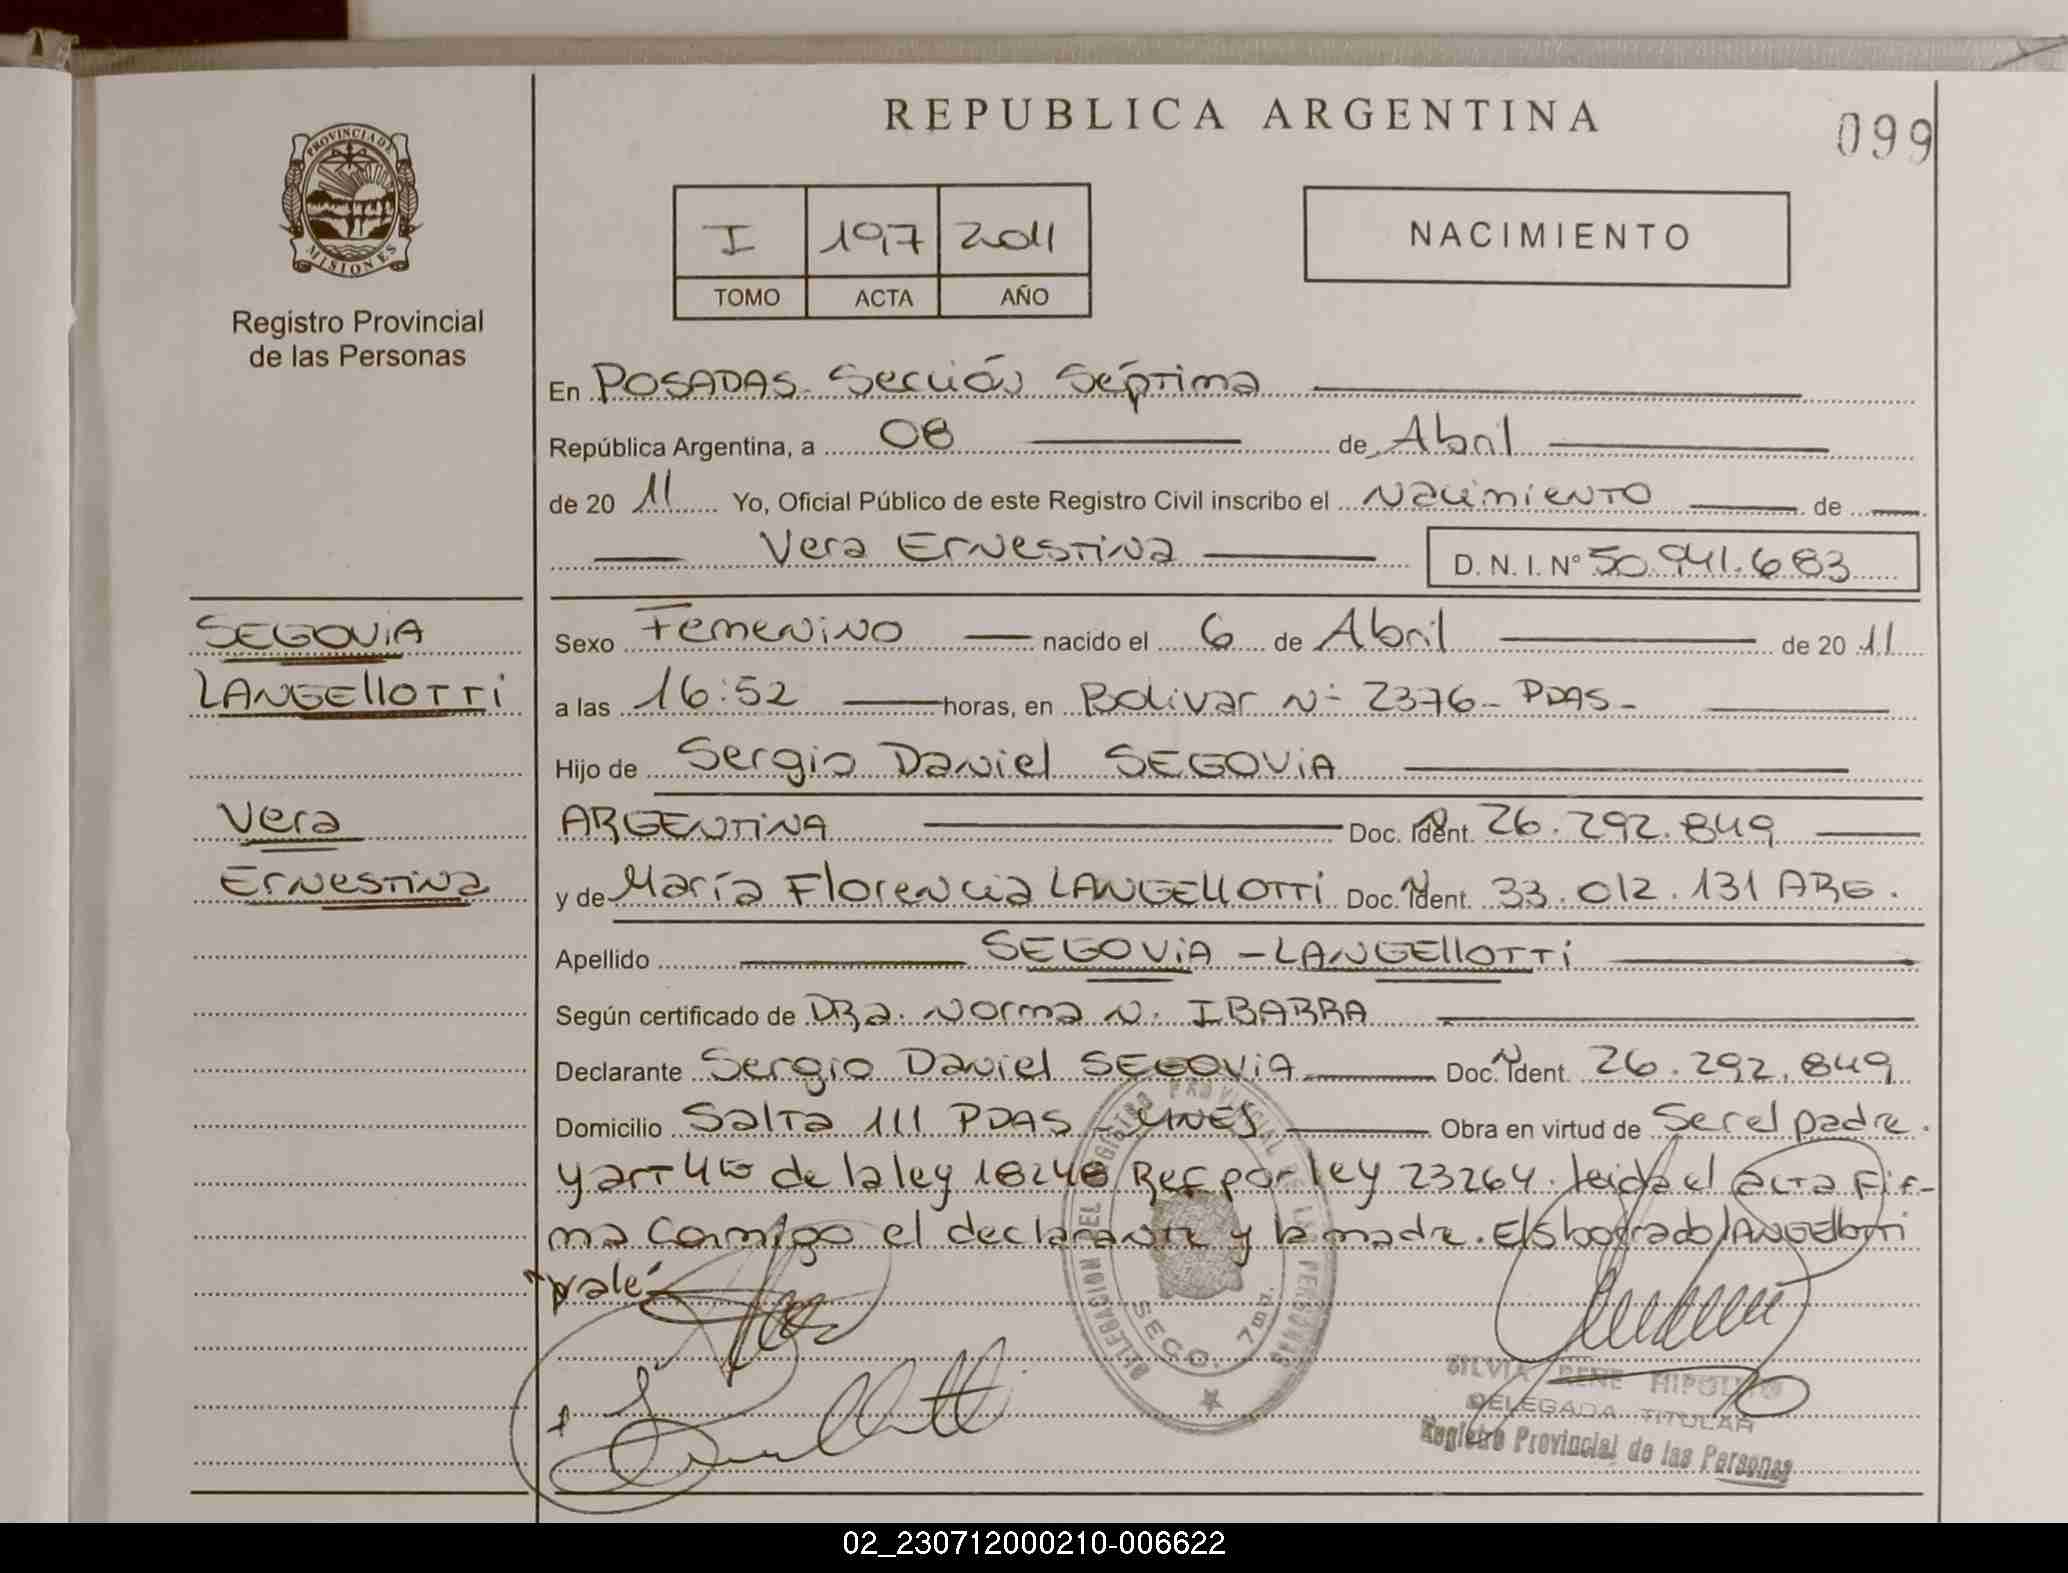 REPUBLICA ARGENTINA
099
PROVINCIA DE
MISIONES
Registro Provincial
de las Personas
I 197 2011
TOMO ACTA AÑO
NACIMIENTO
En POSADAS - Sección Séptima
República Argentina, a 08 de Abril
de 20 11 Yo, Oficial Público de este Registro Civil inscribo el Nacimiento de
Vera Ernestina D. N. I. N° 50.941.683
SEGOVIA
LANGELLOTTI
Vera
Ernestina
Sexo Femenino nacido el 6 de Abril de 20 11
a las 16:52 horas, en Bolivar N° 2376 - PDAS -
Hijo de Sergio Daniel SEGOVIA
ARGENTINA Doc. Ident. 26.292.849
y de María Florencia LANGELLOTTI Doc. Ident. 33.012.131 ARG.
Apellido SEGOVIA - LANGELLOTTI
Según certificado de DRa. Norma N. IBARRA
Declarante Sergio Daniel SEGOVIA Doc. Ident. 26.292.849
Domicilio Salta 111 PDAS - Mnes Obra en virtud de Ser el padre.
y art 4to de la ley 18248 Ref por ley 23264. leida el acta Fir-
ma conmigo el declarante y la madre. E/s borrado LANGEllotti
"vale"
DELEGACION DEL REGISTRO PROVINCIAL DE LAS PERSONAS
SECC. 7ma.
SILVIA RENE HIPOLITO
DELEGADA TITULAR
Registro Provincial de las Personas
02_230712000210-006622